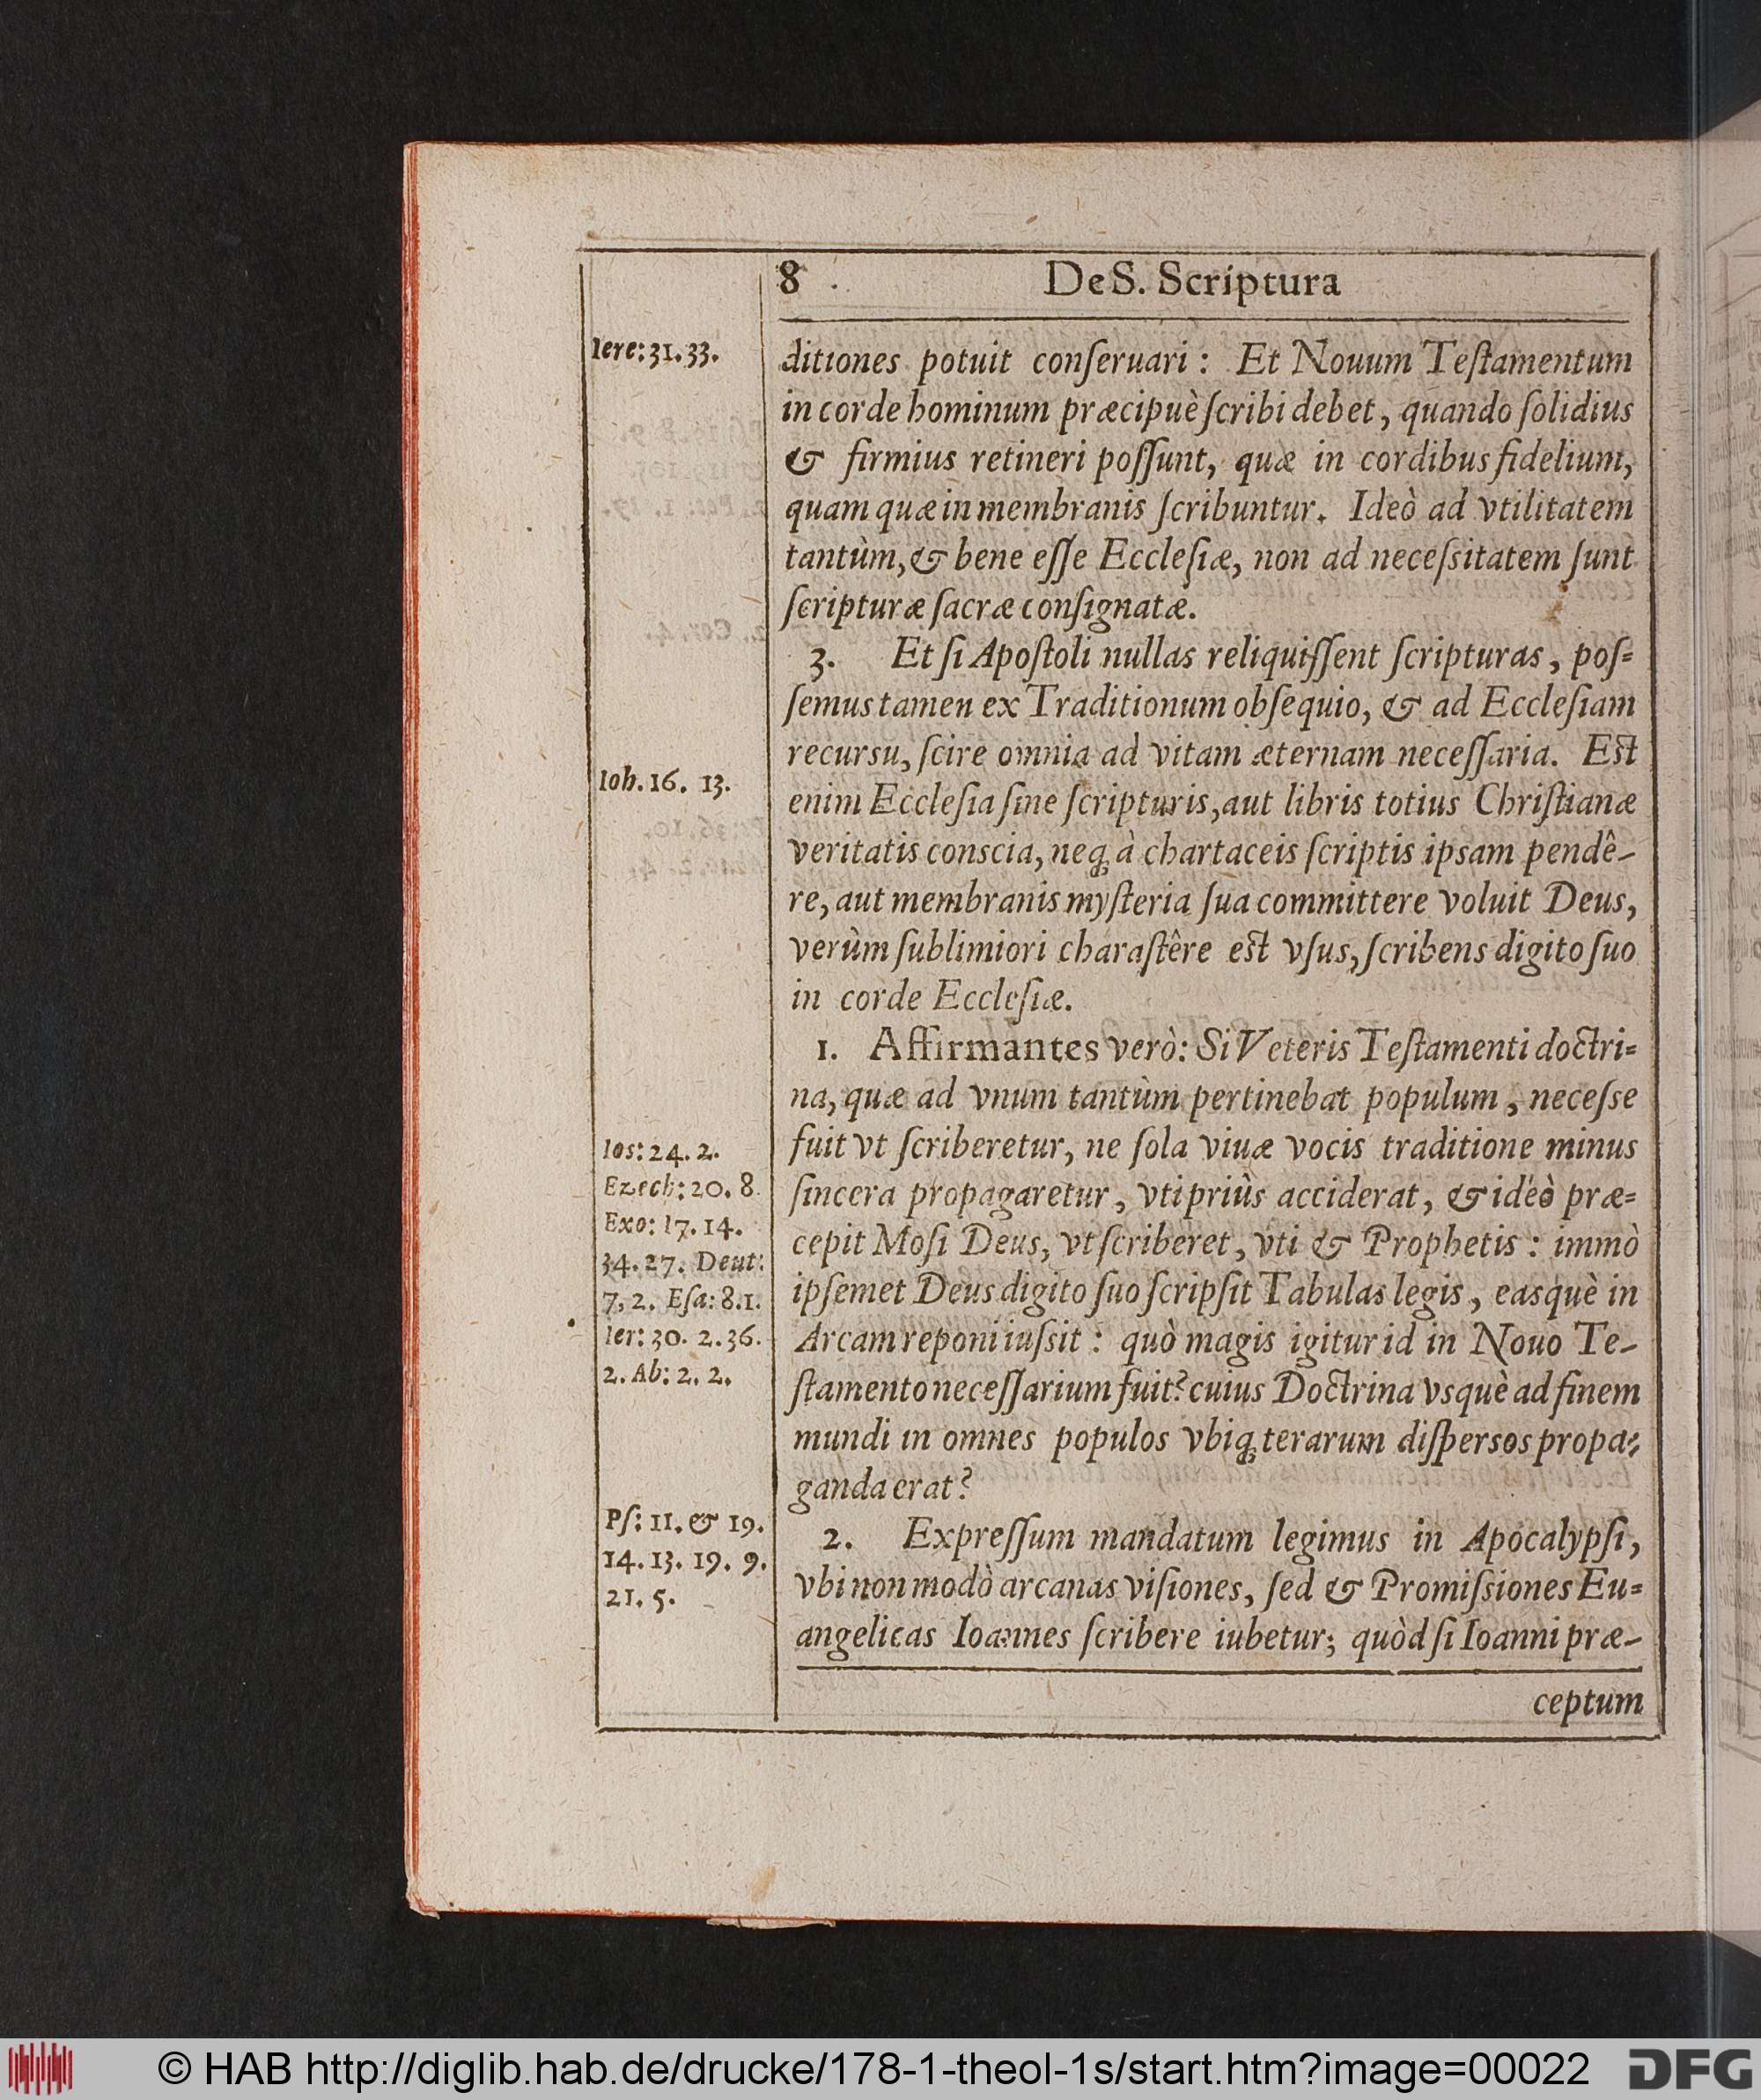 8 De S. Scriptura
Iere: 31. 33.
ditiones potuit conſeruari : Et Nouum Teſtamentum
in corde hominum præcipuè ſcribi debet, quando ſolidius
& firmius retineri poſſunt, quæ in cordibus fidelium,
quam quæ in membranis ſcribuntur. Ideò ad vtilitatem
tantùm, & bene eſſe Eccleſiæ, non ad neceſsitatem ſunt
ſcripturæ ſacræ conſignatæ.
3. Et ſi Apoſtoli nullas reliquiſſent ſcripturas, poſ=
ſemus tamen ex Traditionum obſequio, & ad Eccleſiam
recurſu, ſcire omnia ad vitam æternam neceſſaria. Eſt
Ioh. 16. 13.
enim Eccleſia ſine ſcripturis, aut libris totius Chriſtianæ
veritatis conscia, neq; à chartaceis ſcriptis ipsam pendê-
re, aut membranis myſteria ſua committere voluit Deus,
verùm ſublimiori charaſtêre eſt vſus, ſcribens digito ſuo
in corde Eccleſiæ.
1. Affirmantes verò: Si Veteris Teſtamenti doctri=
na, quæ ad vnum tantùm pertinebat populum, neceſse
fuit vt ſcriberetur, ne ſola viuæ vocis traditione minus
ſincera propagaretur, vti priûs acciderat, & ideò præ=
cepit Moſi Deus, vt ſcriberet, vti & Prophetis : immò
ipſemet Deus digito ſuo ſcripſit Tabulas legis, easquè in
Arcam reponi iuſsit : quò magis igitur id in Nouo Te-
ſtamento neceſſarium fuit? cuius Doctrina vsquè ad finem
mundi in omnes populos vbiq; terarum diſpersos propa=
ganda erat?
Ios: 24. 2.
Ezech: 20. 8.
Exo: 17. 14.
34. 27. Deut:
7, 2. Eſa: 8. 1.
Ier: 30. 2. 36.
2. Ab: 2. 2.
2. Expreſſum mandatum legimus in Apocalypſi,
vbi non modò arcanas viſiones, ſed & Promiſsiones Eu=
angelicas Ioannes ſcribere iubetur; quòd ſi Ioanni præ-
Pſ: 11. & 19.
14. 13. 19. 9.
21. 5.
ceptum
© HAB http://diglib.hab.de/drucke/178-1-theol-1s/start.htm?image=00022
DFG